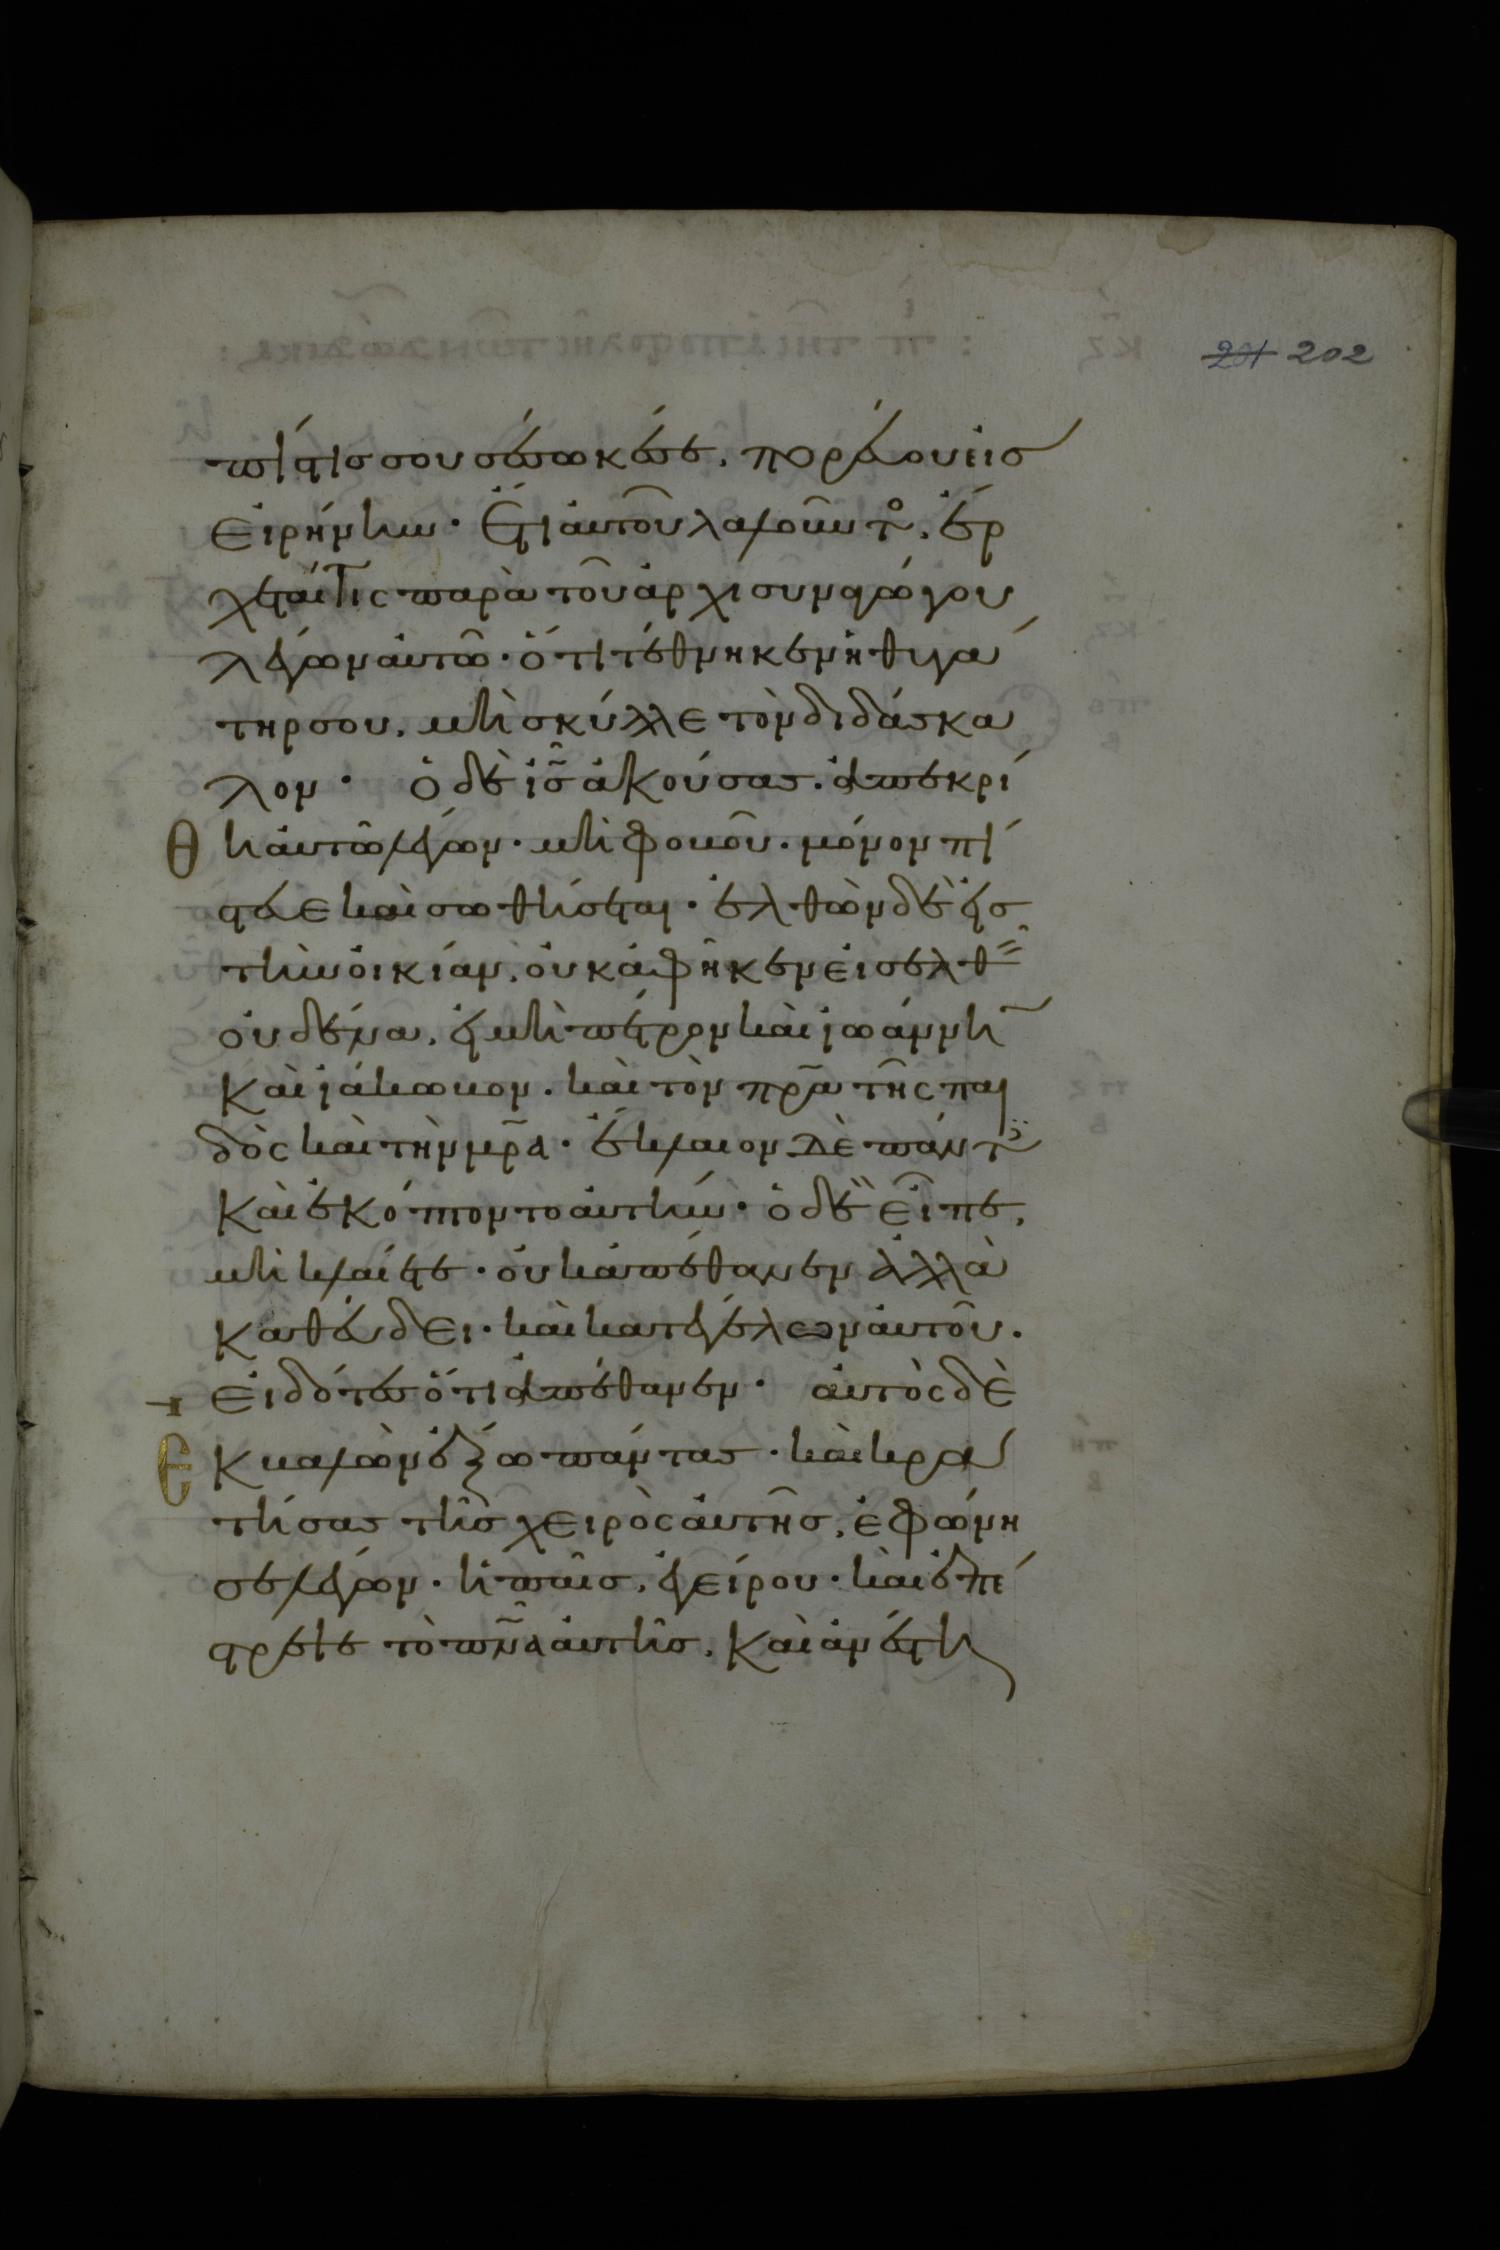 202
πίστις σου σέσωκέ σε. πορεύου εἰς
εἰρήνην· Ἔτι αὐτοῦ λαλοῦντο. ἔρ
χεταί τις παρὰ τοῦ ἀρχισυναγώγου
λέγων αὐτῶ· ὅτι τέθνηκεν ἡ θυγά
τηρ σου. μὴ σκύλλε τὸν διδάσκα
λον· ὁ δὲ ἰς ἀκούσας. ἀπεκρί
θη αὐτῶ λέγων· μὴ φοβοῦ. μόνον πί
στευε καὶ σωθήσεται· ἐλθὼν δὲ εἰς
τὴν οἰκίαν. οὐκ ἀφῆκεν εἰσελθ
οὐδένα. εἰ μὴ πέτρον καὶ ἰωάννη
καὶ ἰάκωβον. καὶ τὸν πρα τῆς παι
δὸς καὶ τὴν μρα· ἔκλαιον δὲ πάντ
καὶ ἐκόπτοντο αὐτήν· ὁ δὲ εἶπε.
μὴ κλαίετε· οὐκ ἀπέθανεν ἀλλὰ
καθεύδει· καὶ κατεγέλων αὐτοῦ.
εἰδότες ὅτι ἀπέθανεν· αὐτὸς δὲ
ἐκβαλὼν ἔξω πάντας· καὶ κρα
τήσας τῆς χειρὸς αὐτῆς. ἐφώνη
σε λέγων· ἡ παῖς. ἐγείρου· καὶ ἐπέ
στρεψε τὸ πνα αὐτῆς. καὶ ἀνέστη